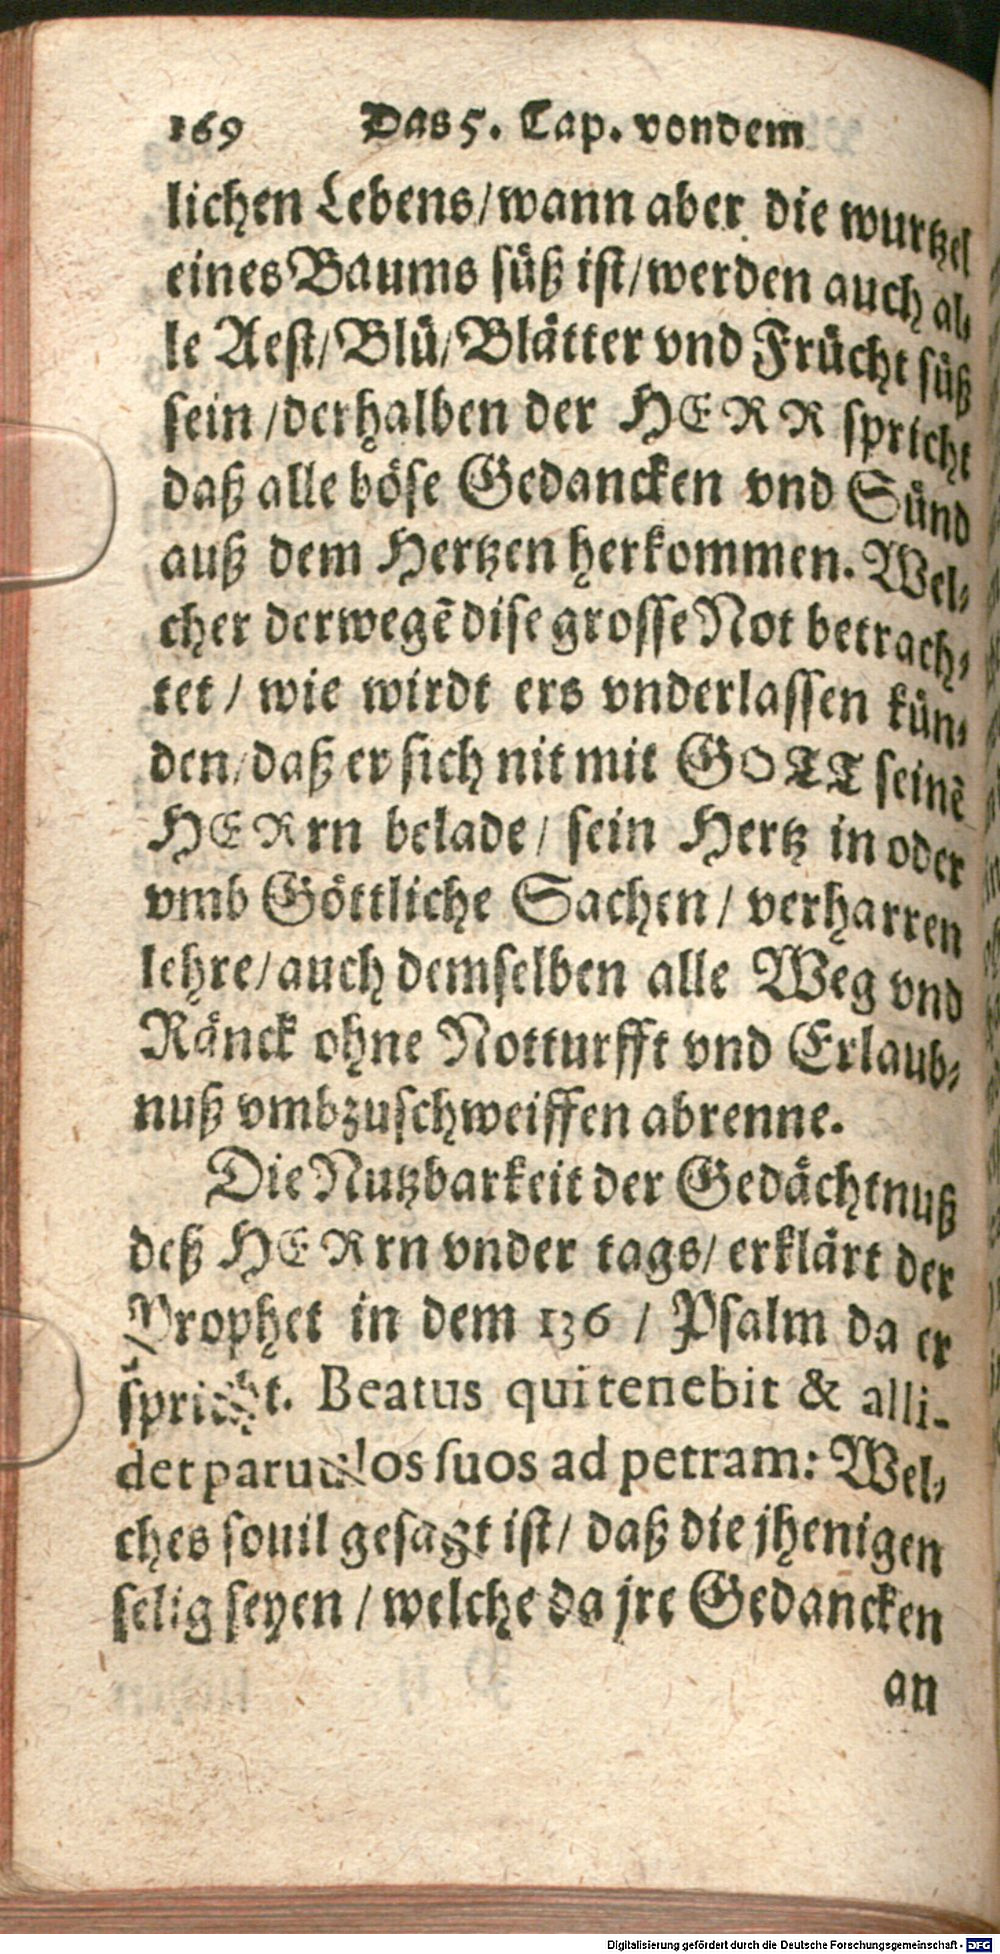 169 Das 5. Cap. von dem
lichen Lebens/ wann aber die wurtzel
eines Baums süß ist/ werden auch al⸗
le Aest/ Blü/ Blätter vnd Frücht süß
sein / derhalben der HERR spricht
daß alle böse Gedancken vnd Sünd
auß dem Hertzen herkommen. Wel⸗
cher derwegẽ dise grosse Not betrach⸗
tet / wie wirdt ers vnderlassen kün⸗
den/ daß er sich nit mit GOTT seinẽ
HERrn belade / sein Hertz in oder
vmb Göttliche Sachen / verharren
lehre/ auch demselben alle Weg vnd
Ränck ohne Notturfft vnd Erlaub⸗
nuß vmbzuschweiffen abrenne.
Die Nutzbarkeit der Gedächtnuß
deß HERrn vnder tags/ erklärt der
Prophet in dem 136 / Psalm da er
spricht. Beatus qui tenebit & alli-
det paruulos suos ad petram: Wel⸗
ches souil gesagt ist/ daß die jhenigen
selig seyen / welche da jre Gedancken
an
Digitalisierung gefördert durch die Deutsche Forschungsgemeinschaft - DFG